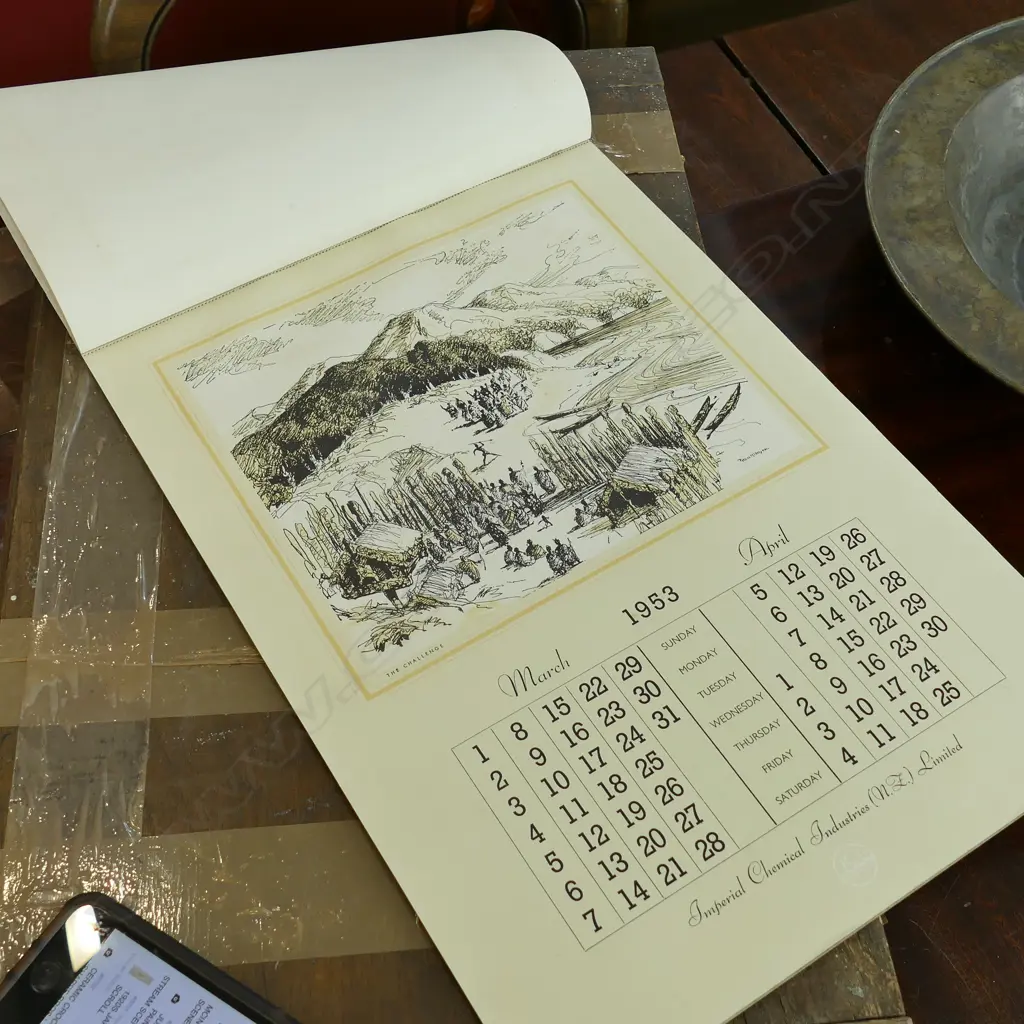 THE CHALLENGE
1953
March
April
1 8 15 22 29 SUNDAY 5 12 19 26
2 9 16 23 30 MONDAY 6 13 20 27
3 10 17 24 31 TUESDAY 7 14 21 28
4 11 18 25 WEDNESDAY 1 8 15 22 29
5 12 19 26 THURSDAY 2 9 16 23 30
6 13 20 27 FRIDAY 3 10 17 24
7 14 21 28 SATURDAY 4 11 18 25
Imperial Chemical Industries (N.Z.) Limited
CERAMIC CROC
SCROLL
1920S JA
STREAM SCE
SCENE